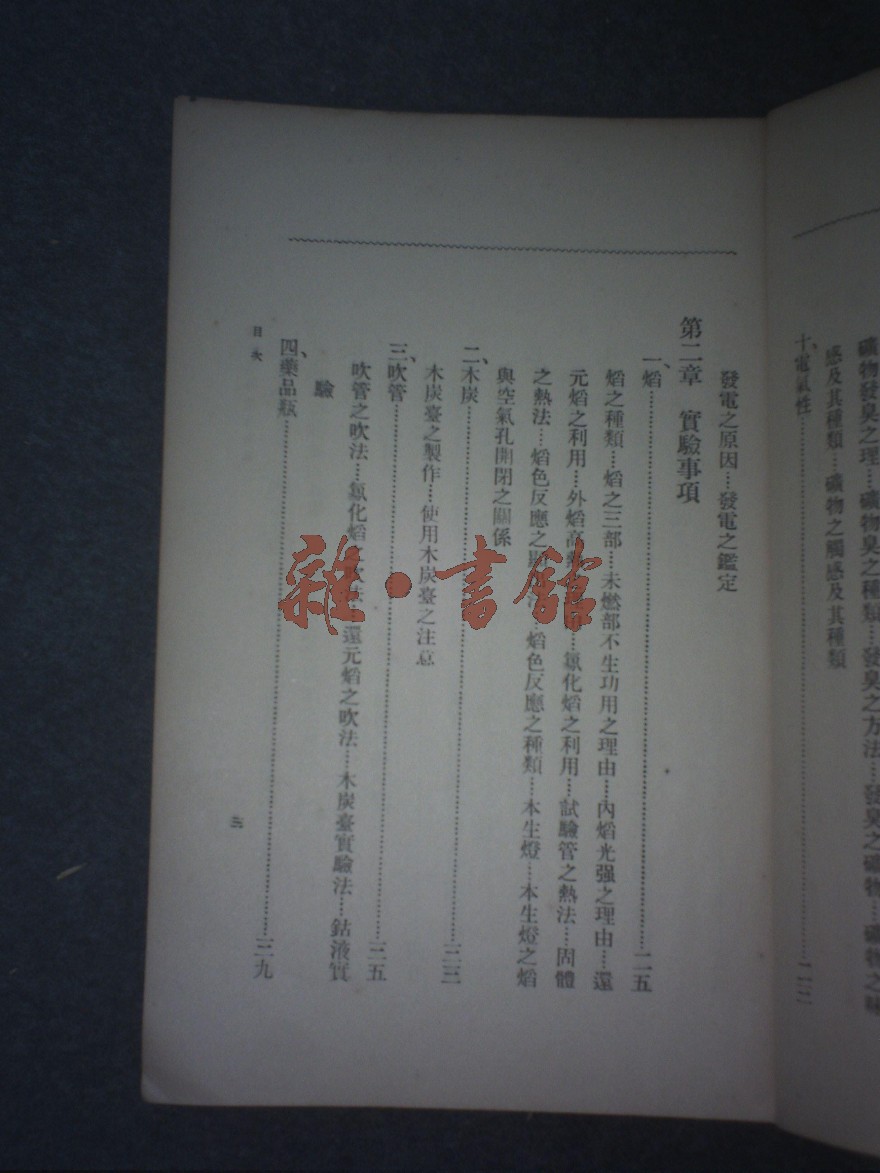 礦物發臭之理……礦物臭之種類……發臭之方法……發臭之礦物……礦物之味
感及其種類……礦物之觸感及其種類
十、電氣性……二三
發電之原因……發電之鑑定
第二章 實驗事項
一、焰……二五
焰之種類……焰之三部……未燃部不生功用之理由……內焰光强之理由……還
元焰之利用……外焰高熱……氧化焰之利用……試驗管之熱法……固體
之熱法……焰色反應之……焰色反應之種類……本生燈……本生燈之焰
與空氣孔開閉之關係
二、木炭……三三
木炭臺之製作……使用木炭臺之注意
三、吹管……三五
吹管之吹法……氧化焰之吹法……還元焰之吹法……木炭臺實驗法……鈷液實
驗
四、藥品瓶……三九
目次
三
雜·書館